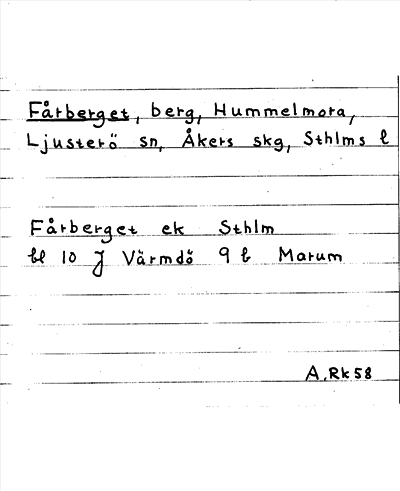 Fårberget, berg, Hummelmora,
Ljusterö sn, Åkers skg, Sthlms l
Fårberget ek Sthlm
bl 10 J Värmdö 9 b Marum
A.Rk58